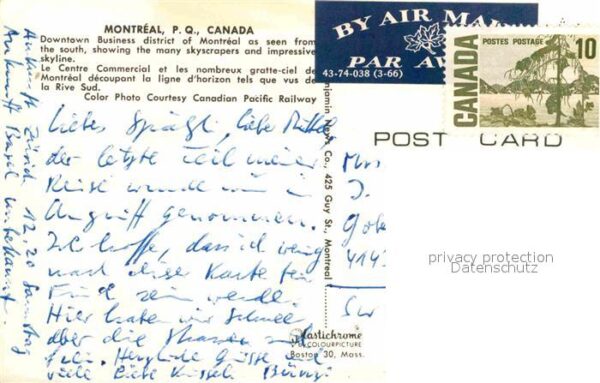 MONTRÉAL, P. Q., CANADA
Downtown Business district of Montréal as seen from
the south, showing the many skyscrapers and impressive
skyline.
Le Centre Commercial et les nombreux gratte-ciel de
Montréal découpant la ligne d'horizon tels que vus de
la Rive Sud.
Color Photo Courtesy Canadian Pacific Railway
BY AIR MAIL
PAR AV
43-74-038 (3-66)
CANADA
POSTES POSTAGE
10
POST CARD
Liebes Spätzli, liebe
der letzte Teil meiner
Reise wurde nun in
Angriff genommen.
Ich hoffe, dass ich wenig
nach dieser Karte bei
Euch sein werde.
Hier haben wir Schnee
aber die Strassen sind
frei. Herzliche Grüsse und
viele liebe Küssli
Ankunft Zürich 12.20 Samstag
Ankunft Basel unbekannt.
njamin News Co., 425 Guy St., Montreal
Plastichrome
COLOURPICTURE
Boston 30, Mass.
414
privacy protection
Datenschutz